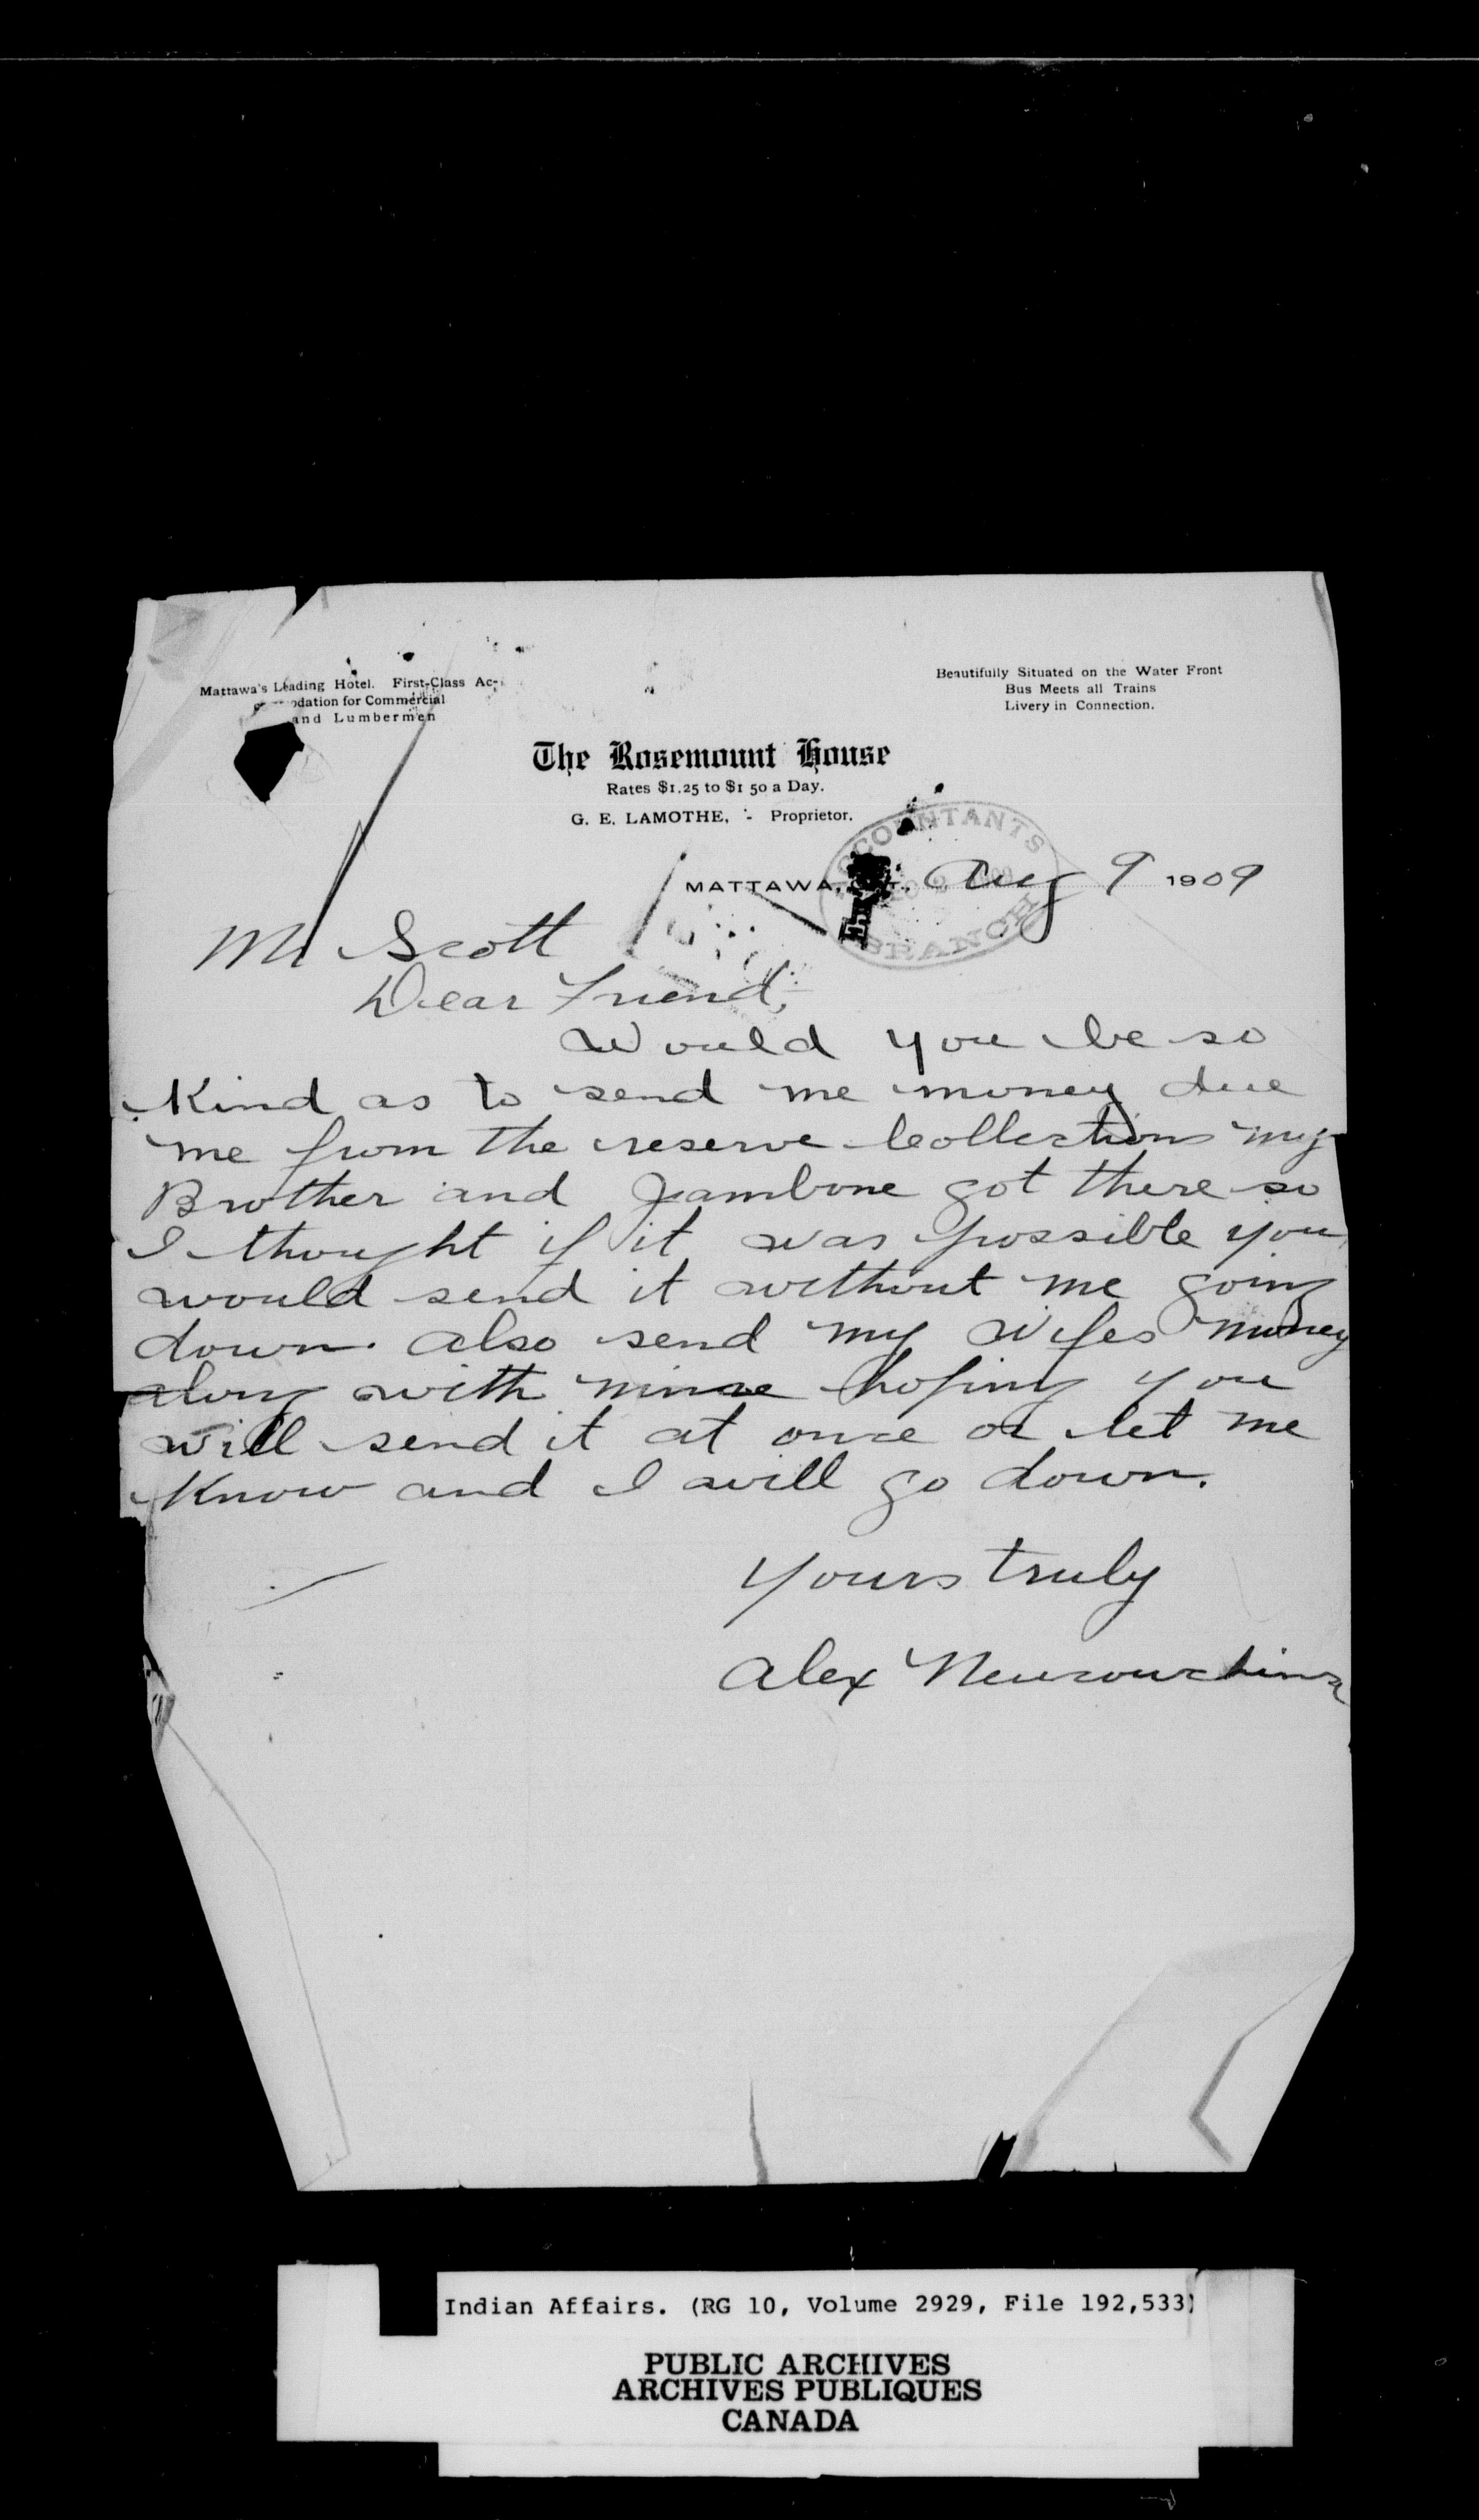 Mattawa's Leading Hotel. First-Class Ac-
odation for Commercial
and Lumbermen
Beautifully Situated on the Water Front
Bus Meets all Trains
Livery in Connection.
The Rosemount House
Rates $1.25 to $1 50 a Day.
G. E. LAMOTHE, - Proprietor.
ACCOUNTANTS
BRANCH
MATTAWA, Aug 9 1909
Mr Scott
Dear Friend,
Would you be so
Kind as to send me money due
me from the reserve Collections my
Brother and Jambone got there so
I thought if it was possible you
would send it without me going
down. also send my wifes money
along with mine hoping you
will send it at once or let me
Know and I will go down.
Yours truly
Alex
Indian Affairs. (RG 10, Volume 2929, File 192,533)
PUBLIC ARCHIVES
ARCHIVES PUBLIQUES
CANADA